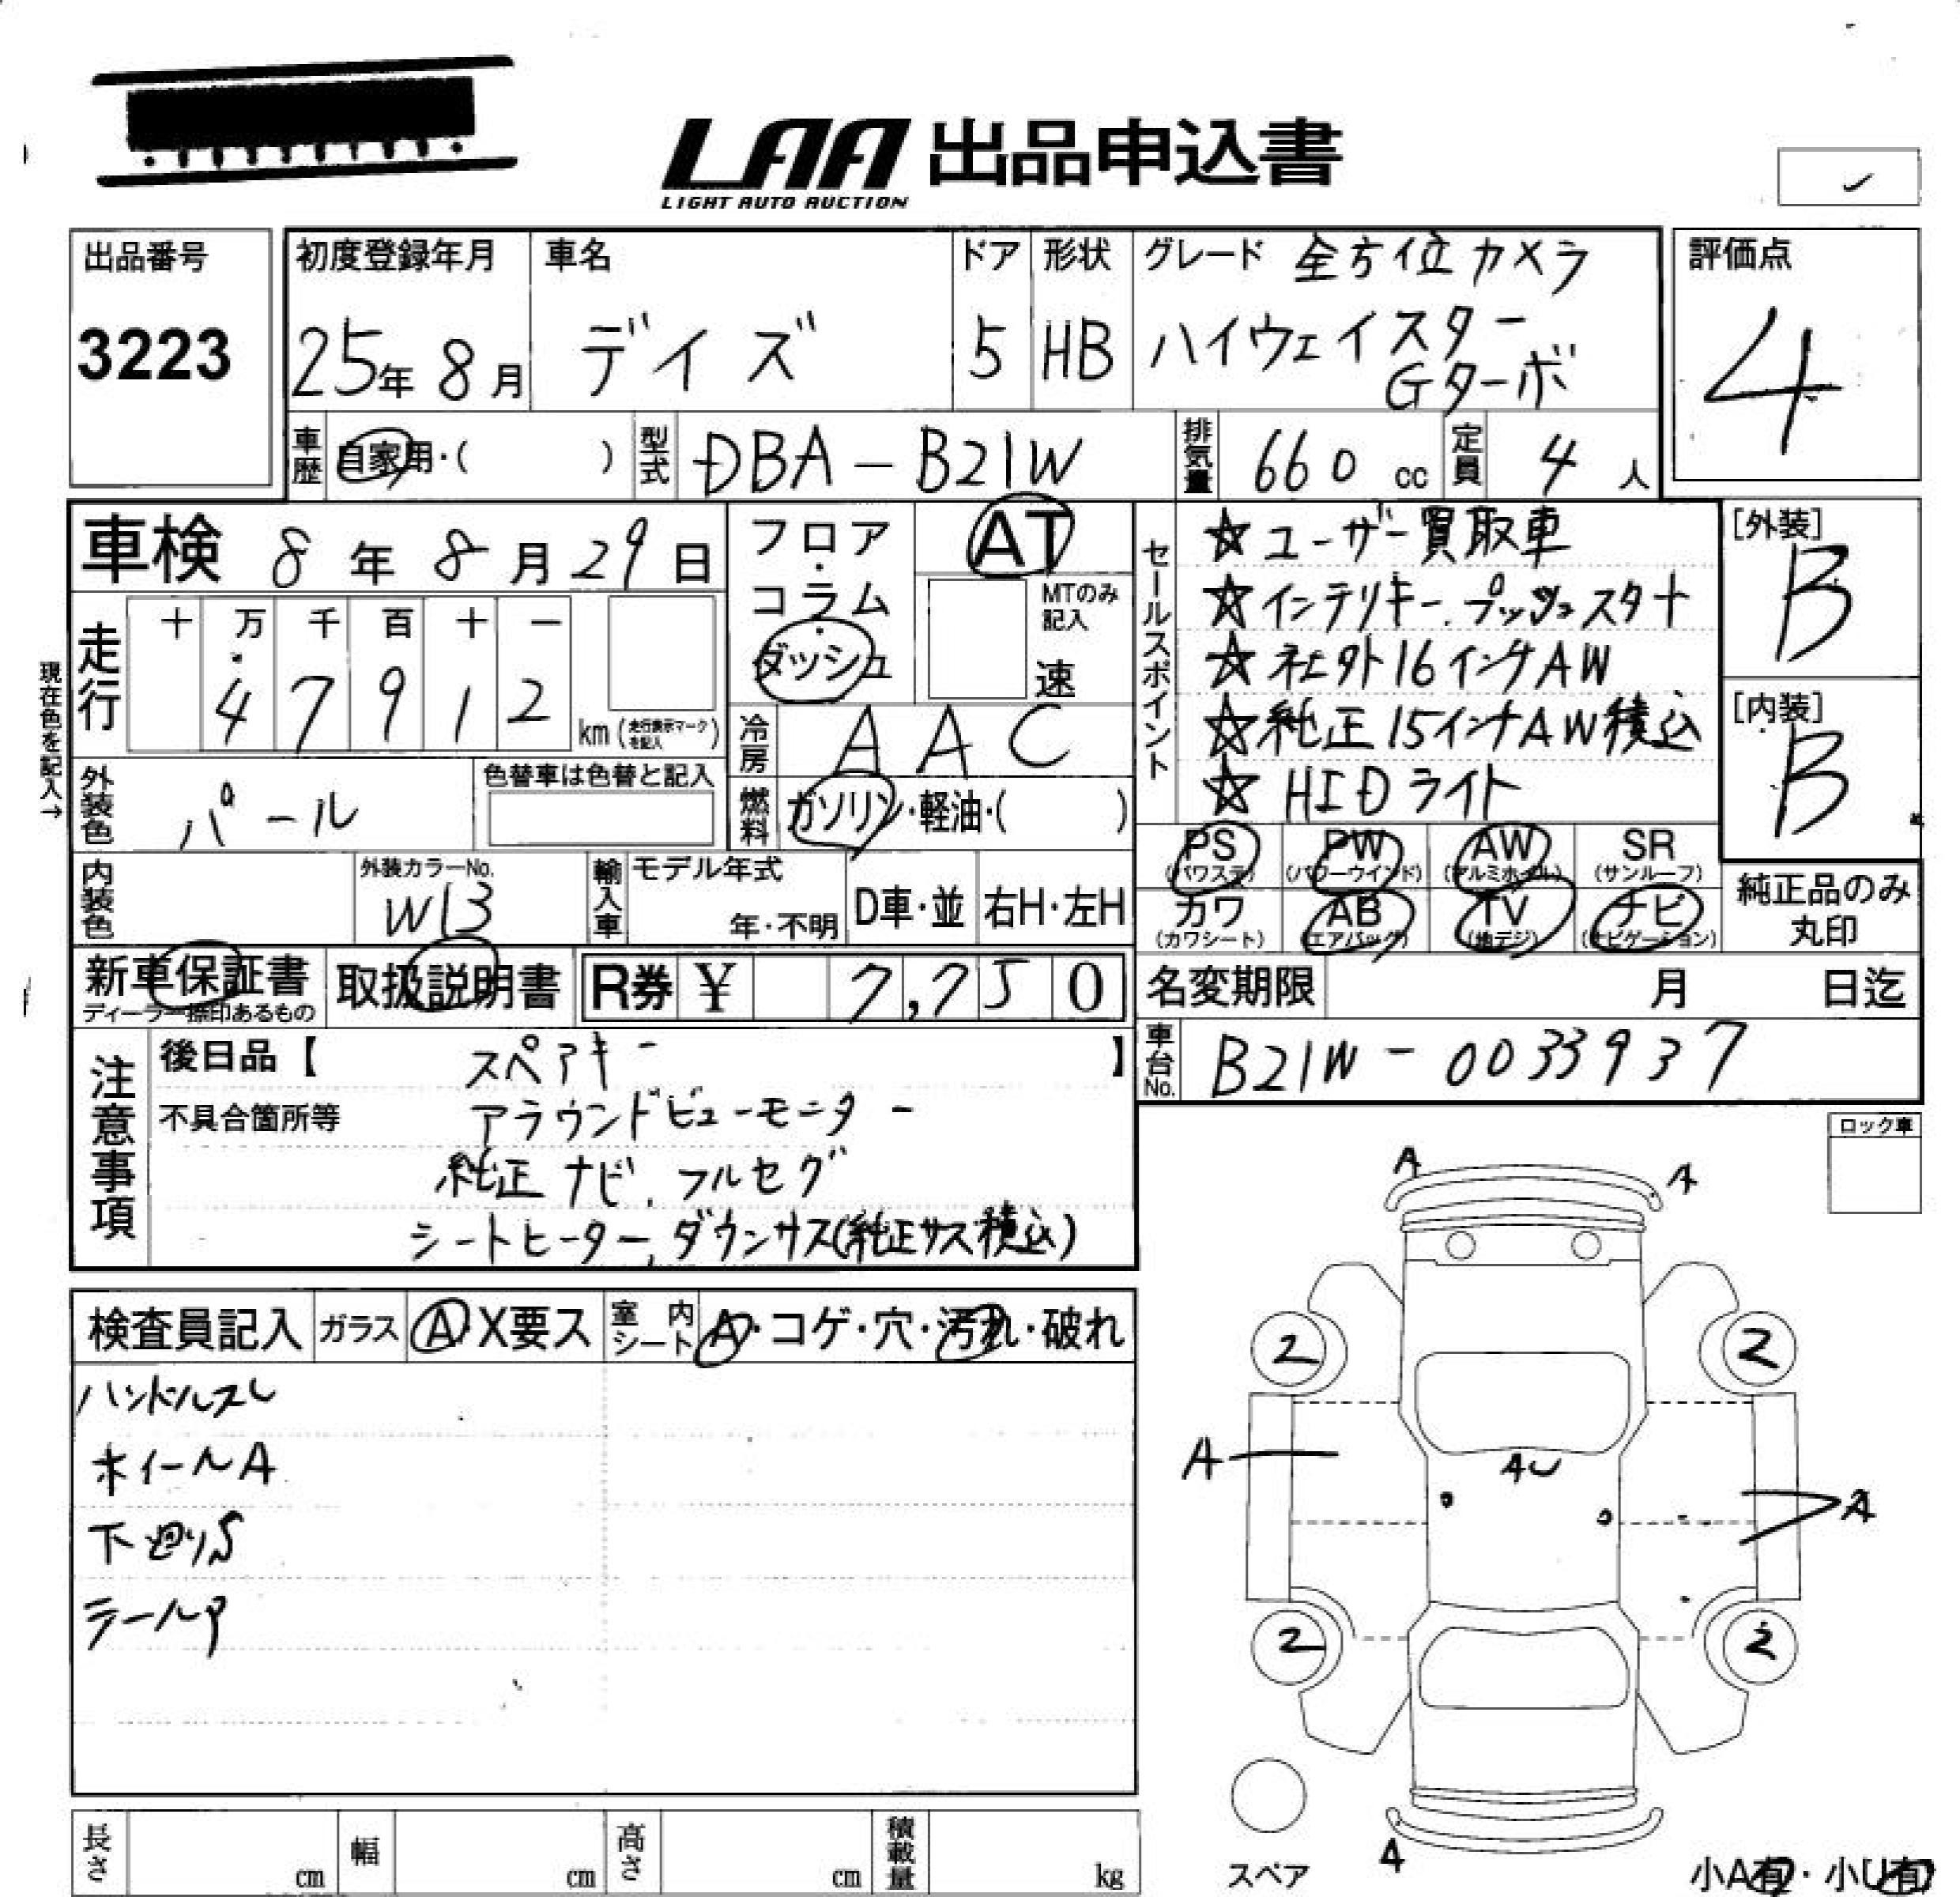 LAA 出品申込書
LIGHT AUTO AUCTION
出品番号
3223
初度登録年月
25年 8月
車名
デイズ
ドア
5
形状
HB
グレード 全方位カメラ
ハイウェイスター
Gターボ
評価点
4
車歴 自家用・( )
型式 DBA-B21W
排気量 660 cc
定員 4 人
車検 8年 8月 29日
現在色を記入→
走行
十 万 千 百 十 一
4 7 9 1 2 km (走行表示マークを記入)
フロア・コラム・ダッシュ
AT
MTのみ記入
速
冷房 AAC
燃料 ガソリン・軽油・( )
外装色 パール
色替車は色替と記入
内装色
外装カラーNo.
W13
輸入車
モデル年式
年・不明
D車・並
右H・左H
セールスポイント
☆ユーザー買取車
☆インテリキー.プッシュスタート
☆社外16インチAW
☆純正15インチAW積込
☆HIDライト
[外装]
B
[内装]
B
PS (パワステ)
PW (パワーウインド)
AW (アルミホイル)
SR (サンルーフ)
カワ (カワシート)
AB (エアバッグ)
TV (地デジ)
ナビ (ナビゲーション)
純正品のみ
丸印
新車保証書
ディーラー捺印あるもの
取扱説明書
R券 ¥ 7,750
名変期限 月 日迄
車台No. B21W-0033937
注意事項
後日品【 スペアキー 】
不具合箇所等 アラウンドビューモニター
純正ナビ.フルセグ
シートヒーター.ダウンサス(純正サス積込)
ロック車
検査員記入
ガラス A・X要ス
室内シート A・コゲ・穴・汚れ・破れ
ハンドルスレ
ホイールA
下廻りS
A
A
2
2
A
A
2
2
スペア
小A有・小U有
長さ cm
幅 cm
高さ cm
積載量 kg